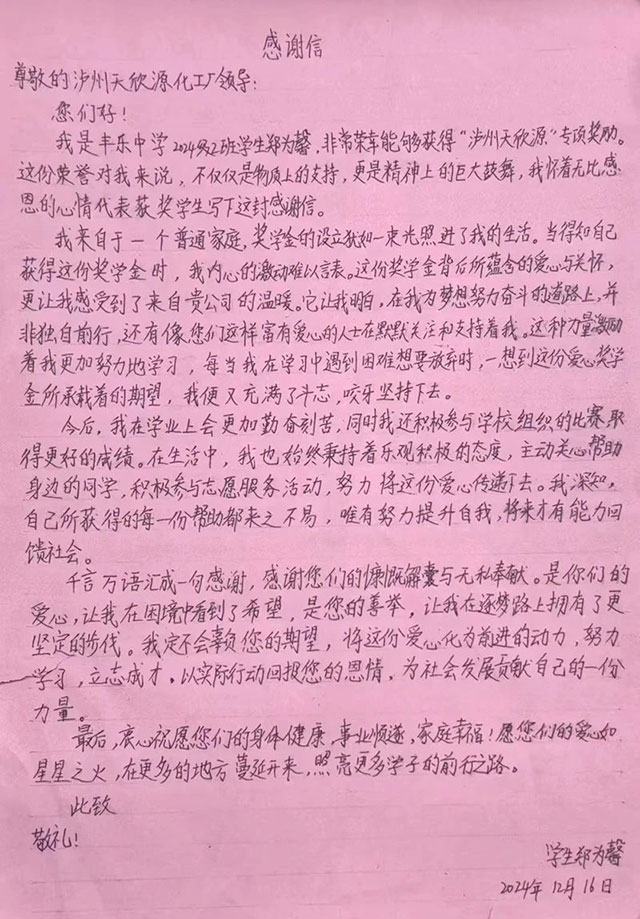 感谢信
尊敬的泸州天欣源化工厂领导:
您们好!
我是丰乐中学2024级2班学生郑为馨,非常荣幸能够获得“泸州天欣源”专项奖励。
这份荣誉对我来说,不仅仅是物质上的支持,更是精神上的巨大鼓舞,我怀着无比感
恩的心情代表获奖学生写下这封感谢信。
我来自于一个普通家庭,奖学金的设立犹如一束光照进了我的生活。当得知自己
获得这份奖学金时,我内心的激动难以言表。这份奖学金背后所蕴含的爱心与关怀,
更让我感受到了来自贵公司的温暖。它让我明白,在我为梦想努力奋斗的道路上,并
非独自前行,还有像您们这样富有爱心的人士在默默关注和支持着我。这种力量激励
着我更加努力地学习,每当我在学习中遇到困难想要放弃时,一想到这份爱心奖学
金所承载着的期望,我便又充满了斗志,咬牙坚持下去。
今后,我在学业上会更加勤奋刻苦,同时我还积极参与学校组织的比赛,取
得更好的成绩。在生活中,我也始终秉持着乐观积极的态度,主动关心帮助
身边的同学,积极参与志愿服务活动,努力将这份爱心传递下去。我深知,
自己所获得的每一份帮助都来之不易,唯有努力提升自我,将来才有能力回
馈社会。
千言万语汇成一句感谢,感谢您们的慷慨解囊与无私奉献。是你们的
爱心,让我在困境中看到了希望,是您的善举,让我在逐梦路上拥有了更
坚定的步伐。我定不会辜负您的期望,将这份爱心化为前进的动力,努力
学习,立志成才,以实际行动回报您的恩情,为社会发展贡献自己的一份
力量。
最后,衷心祝愿您们的身体健康,事业顺遂,家庭幸福!愿您们的爱心如
星星之火,在更多的地方蔓延开来,照亮更多学子的前行之路。
此致
敬礼!
学生郑为馨
2024年12月16日